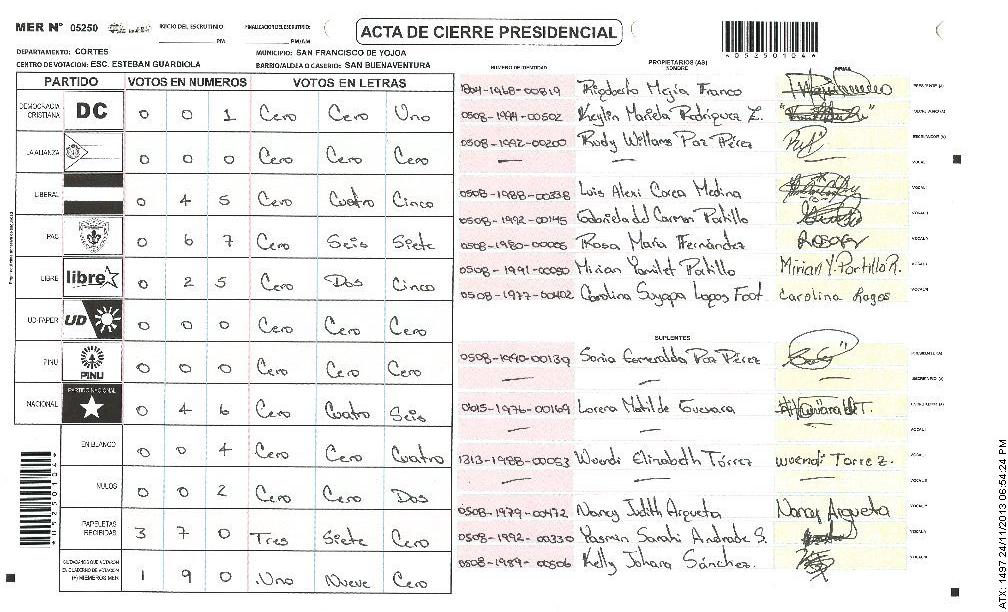 MER Nº 05250 INICIO DEL ESCRUTINIO FINALIZACION DEL ESCRUTINIO: ACTA DE CIERRE PRESIDENCIAL
PM PM/AM *05250104*
DEPARTAMENTO: CORTES MUNICIPIO: SAN FRANCISCO DE YOJOA
CENTRO DE VOTACION: ESC. ESTEBAN GUARDIOLA BARRIO/ALDEA O CASERIO: SAN BUENAVENTURA
PARTIDO VOTOS EN NUMEROS VOTOS EN LETRAS
DEMOCRACIA CRISTIANA DC 0 0 1 Cero Cero Uno
LA ALIANZA 0 0 0 Cero Cero Cero
LIBERAL 0 4 5 Cero Cuatro Cinco
PAC 0 6 7 Cero Seis Siete
LIBRE libre 0 2 5 Cero Dos Cinco
UD-FAPER UD 0 0 0 Cero Cero Cero
PINU PINU 0 0 0 Cero Cero Cero
NACIONAL PARTIDO NACIONAL 0 4 6 Cero Cuatro Seis
EN BLANCO 0 0 4 Cero Cero Cuatro
NULOS 0 0 2 Cero Cero Dos
PAPELETAS RECIBIDAS 3 7 0 Tres Siete Cero
CIUDADANOS QUE VOTARON 1 9 0 Uno Nueve Cero
NUMERO DE IDENTIDAD PROPIETARIOS (AS) NOMBRE FIRMA
1968-00819 Rigoberto Mejia Franco
0508-1994-00502 Keylin Mariela Rodriguez Z.
0508-1992-00200 Rudy Williams Paz Pérez
0508-1988-00338 Luis Alexi Corea Medina
0508-1992-00145 Gabriela del Carmen Portillo
0508-1980-00005 Rosa Maria Fernández
0508-1991-00050 Mirian Yamilet Portillo Mirian Y. Portillo R.
0508-1977-00402 Carolina Suyapa Lagos Carolina Lagos
SUPLENTES
0508-1990-00139 Sonia Esmeralda Paz Pérez
0615-1976-00169 Lorena Matilde Guevara
1313-1988-00053 Wuendi Elizabeth Tórrez wuendi Torrez.
0508-1979-00472 Nancy Judith Argueta Nancy Argueta
0508-1992-00330 Yasmin Sarahi Andrade S.
0508-1989-00506 Kelly Johara Sánchez.
*05250104*
ATX: 1497 24/11/2013 06:54:24 PM